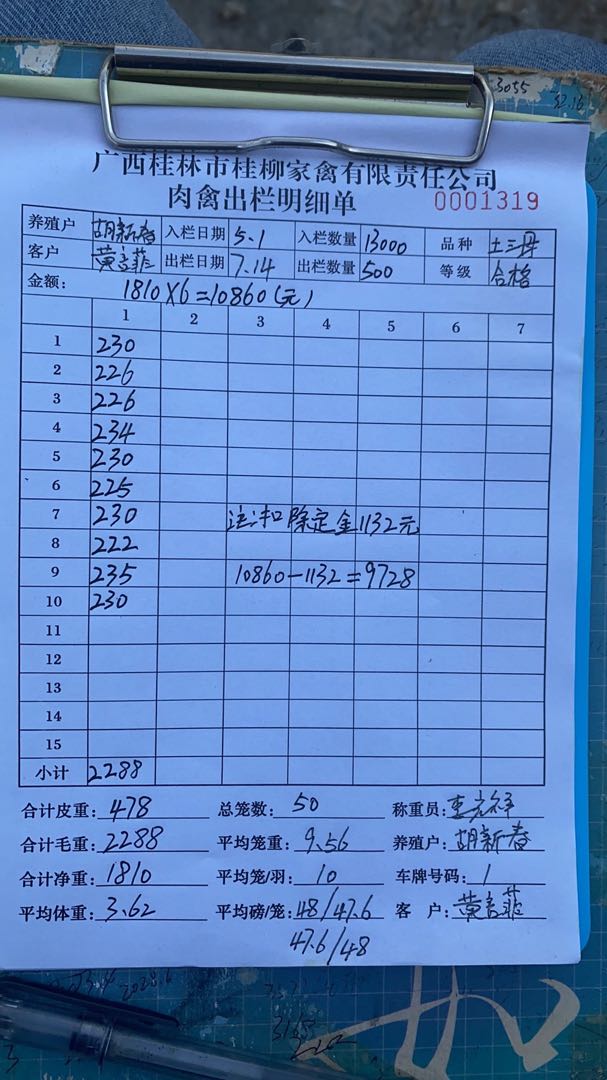 3055
32.16
广西桂林市桂柳家禽有限责任公司
肉禽出栏明细单 0001319
养殖户 胡新春 入栏日期 5.1 入栏数量 13000 品种 土三
客户 黄菲 出栏日期 7.14 出栏数量 500 等级 合格
金额: 1810×6=10860(元)
1 2 3 4 5 6 7
1 230
2 226
3 226
4 234
5 230
6 225
7 230 注:扣除定金1132元
8 222
9 235 10860-1132=9728
10 230
11
12
13
14
15
小计 2288
合计皮重: 478 总笼数: 50 称重员:
合计毛重: 2288 平均笼重: 9.56 养殖户: 胡新春
合计净重: 1810 平均笼/羽: 10 车牌号码: 1
平均体重: 3.62 平均磅/笼: 48/47.6 客 户: 黄菲
47.6/48